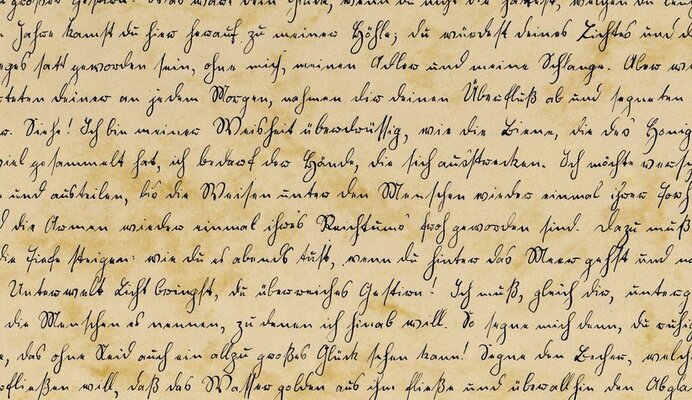 großes Gestirn! Was wäre dein Glück, wenn du nicht die hättest, welchen du leuc
n Jahre kamst du hier herauf zu meiner Höhle; du würdest deines Lichtes und d
eges satt geworden sein, ohne mich, meinen Adler und meine Schlange. Aber w
rteten deiner an jedem Morgen, nahmen dir deinen Überfluß ab und segneten
r. Siehe! Ich bin meiner Weisheit überdrüssig, wie die Biene, die des Honig
viel gesammelt hat, ich bedarf der Hände, die sich ausstrecken. Ich möchte versch
und austeilen, bis die Weisen unter den Menschen wieder einmal ihrer Torh
d die Armen wieder einmal ihres Reichtums froh geworden sind. Dazu muß
die Tiefe steigen: wie du es abends tust, wenn du hinter das Meer gehst und no
Unterwelt Licht bringst, du überreiches Gestirn! Ich muß, gleich dir, unterg
die Menschen es nennen, zu denen ich hinab will. So segne mich denn, du ruhig
e, das ohne Neid auch ein allzu großes Glück sehen kann! Segne den Becher, welch
rfließen will, daß das Wasser golden aus ihm fließe und überallhin den Abgla